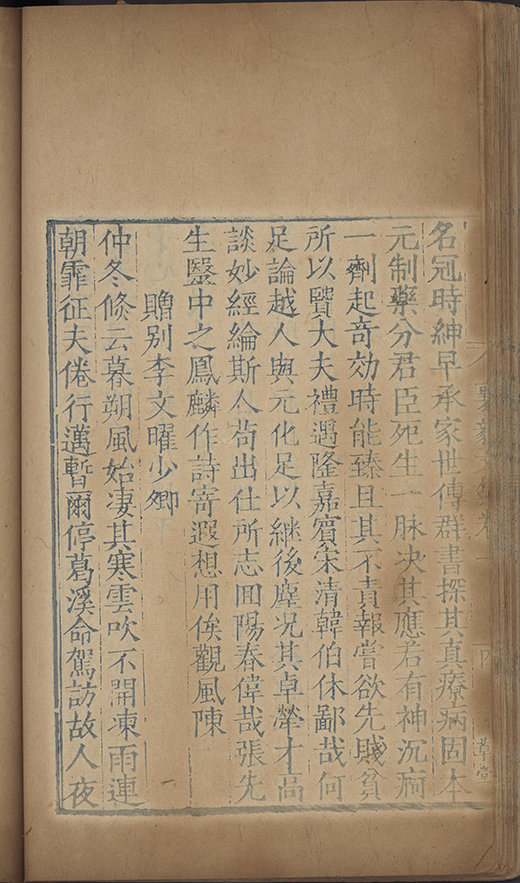 名冠時紳早承家世傳群書探其真療病固本
元制藥分君臣死生一脉决其應若有神沉痾
一劑起奇効時能臻且其不責報嘗欲先賤貧
所以賢大夫禮遇隆嘉賓宋清韓伯休鄙哉何
足論越人與元化足以継後塵况其卓犖才高
談妙經綸斯人苟出仕所志囬陽春偉哉張先
生毉中之鳳麟作詩寄遐想用俟觀風陳
贈别李文曜少卿
仲冬倐云暮朔風始凄其寒雲吹不開凍雨連
朝霏征夫倦行邁暫爾停葛溪命駕訪故人夜
草堂